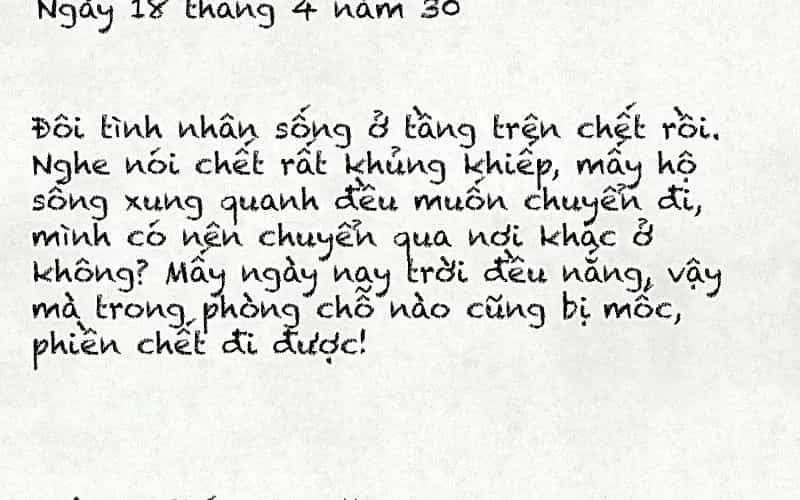 Ngày 18 tháng 4 năm 30
Đôi tình nhân sống ở tầng trên chết rồi.
Nghe nói chết rất khủng khiếp, mấy hộ
sống xung quanh đều muốn chuyển đi,
mình có nên chuyển qua nơi khác ở
không? Mấy ngày nay trời đều nắng, vậy
mà trong phòng chỗ nào cũng bị mốc,
phiền chết đi được!